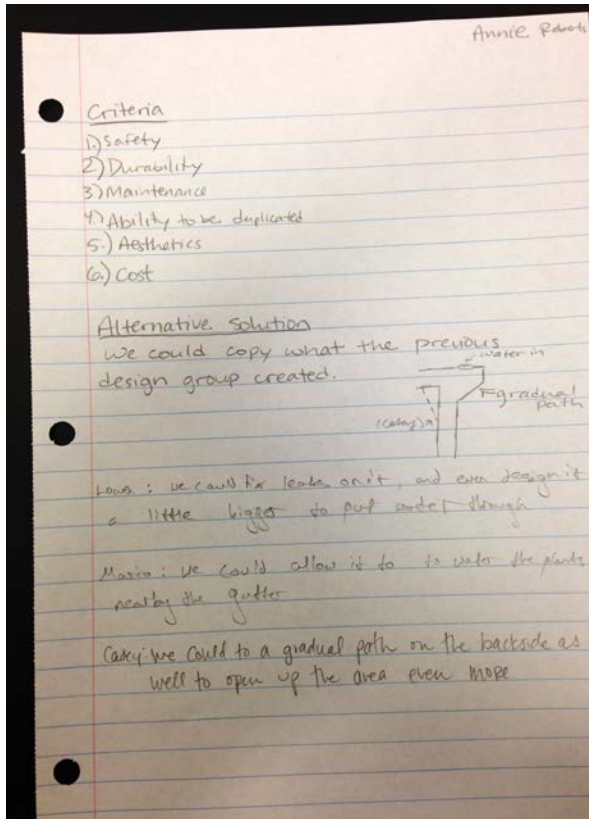 Annie Roberts
Criteria
1.) Safety
2) Durability
3) Maintenance
4.) Ability to be duplicated
5.) Aesthetics
6.) Cost
Alternative Solution
We could copy what the previous
design group created.
water in
gradual
path
(casey)
: we could fix leaks on it, and even design it
a little bigger to put water through
Mario: we could allow it to to water the plants
nearby the gutter
Casey: we could to a gradual path on the backside as
well to open up the area even more